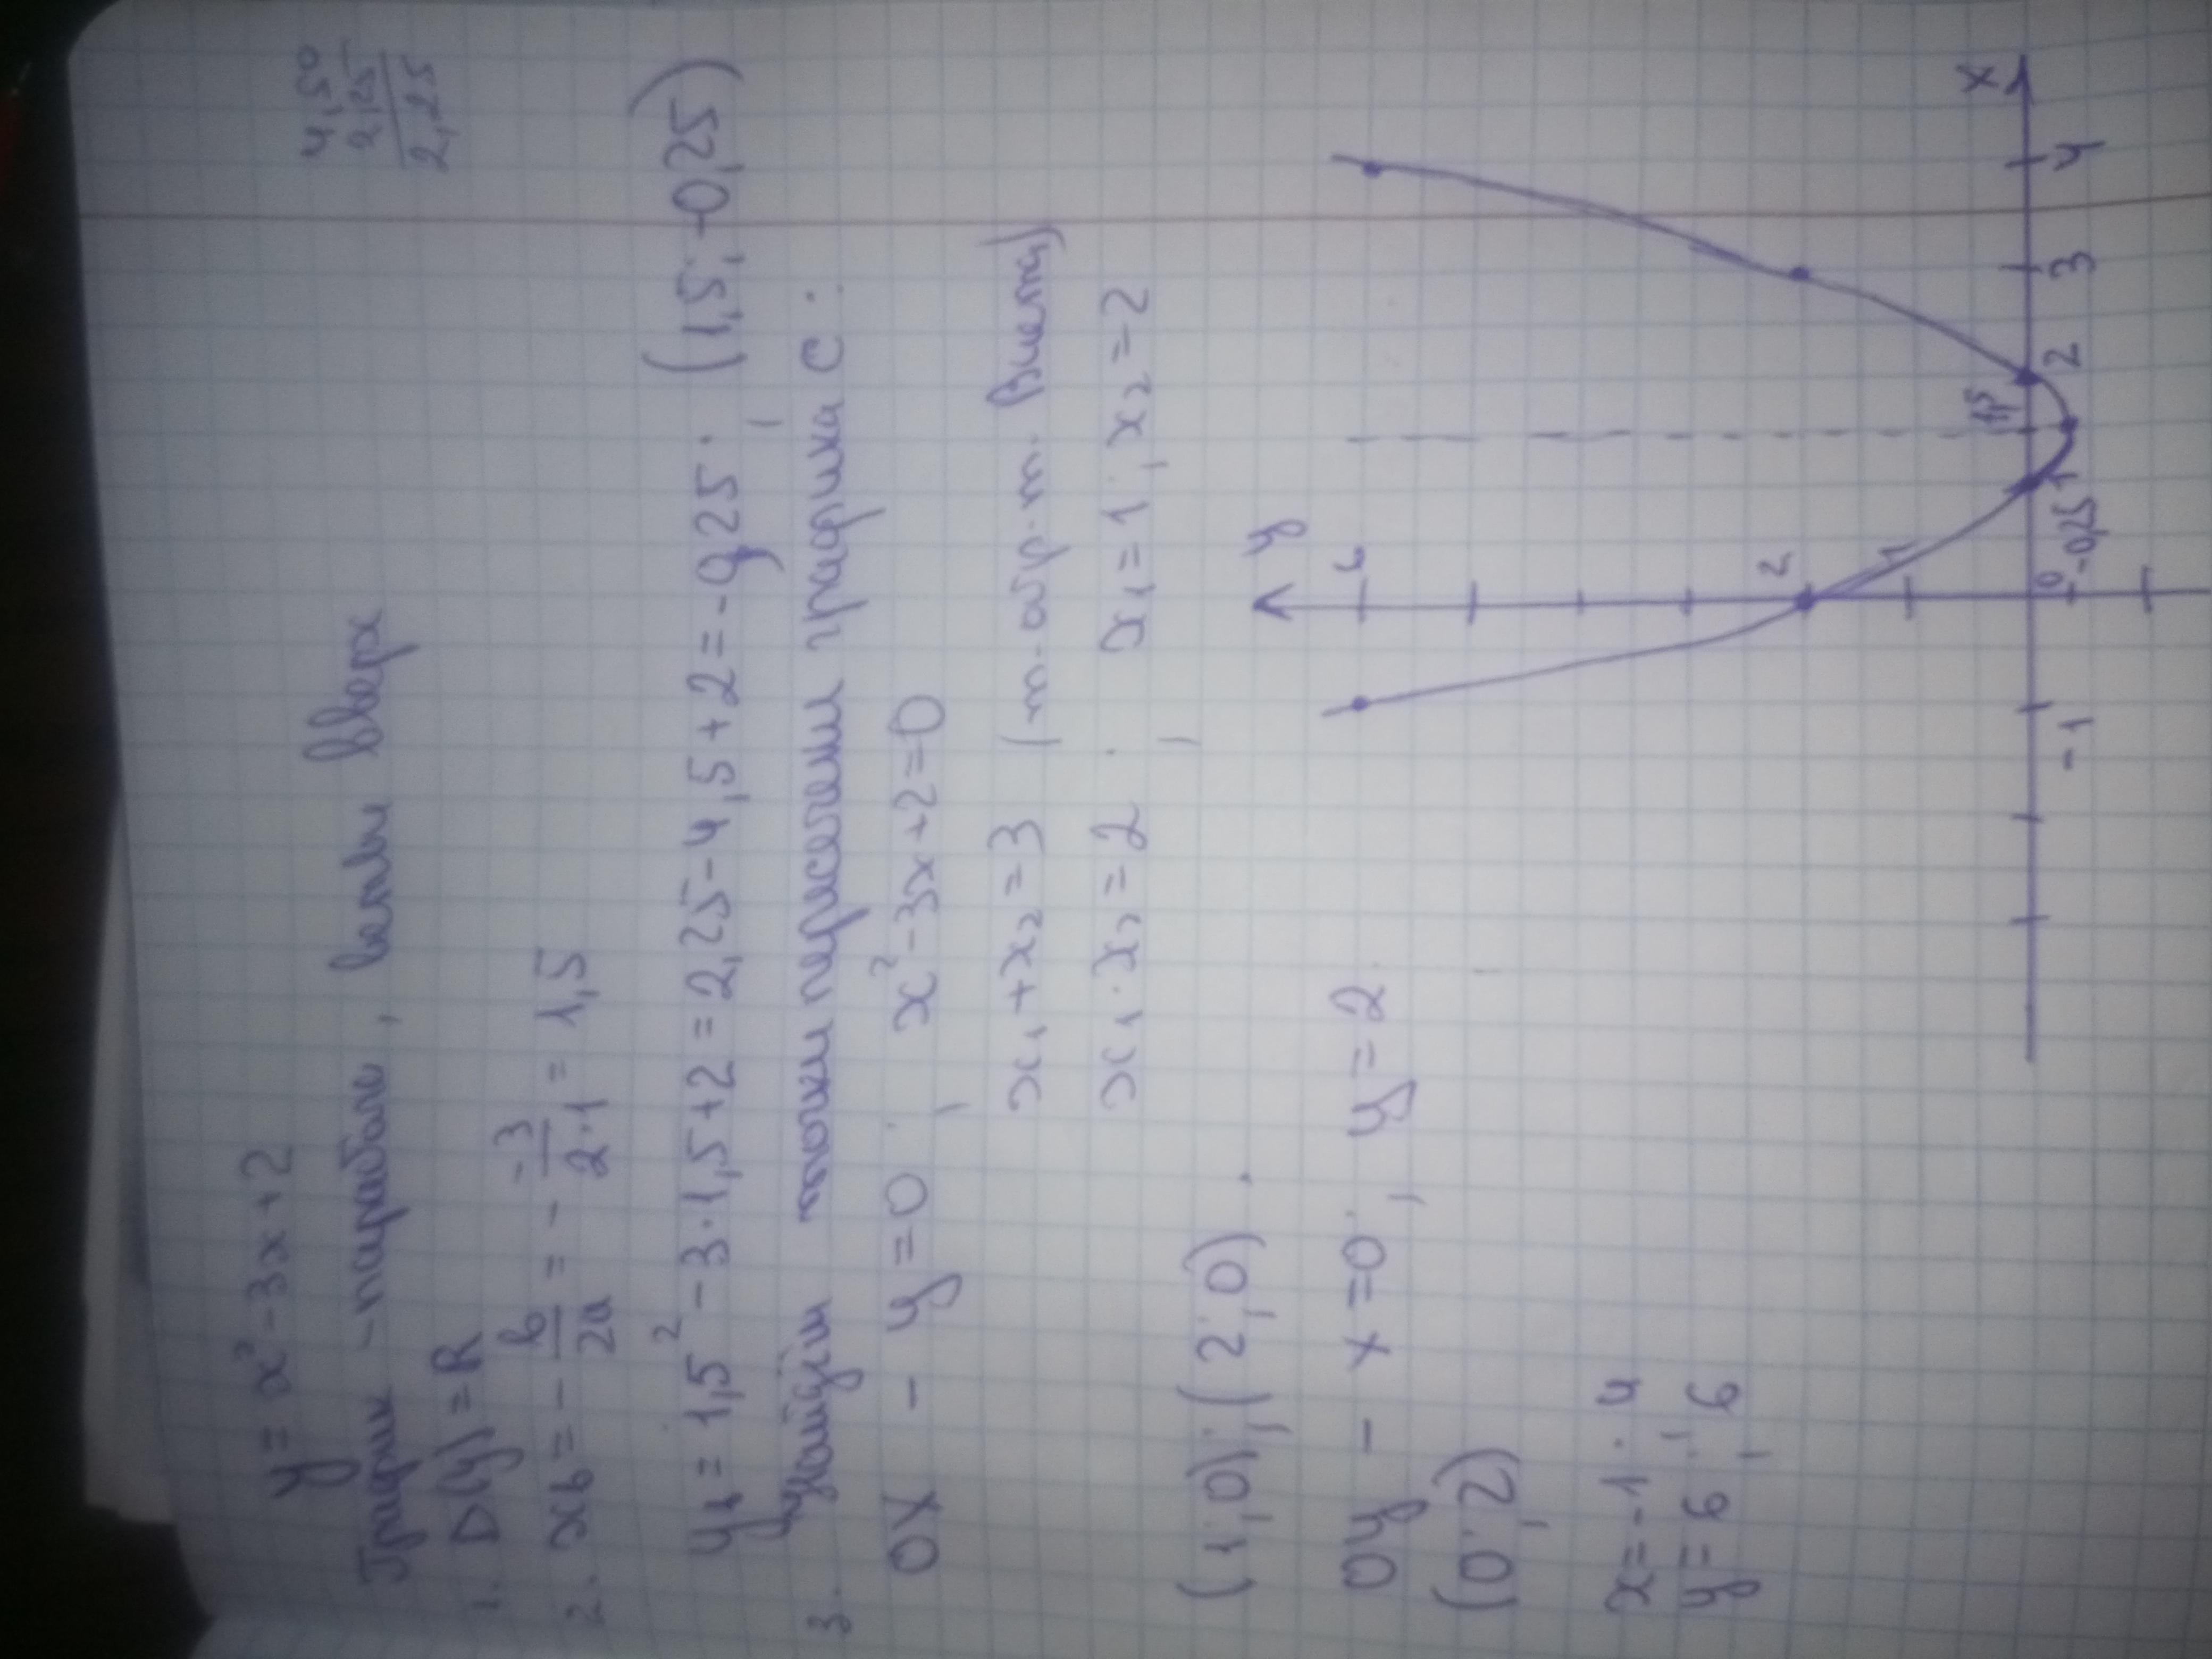 y = x² - 3x + 2
4,50
2,25
2,25
График - парабола, ветви вверх
1. D(y) = R
2. xb = - b/2a = - -3/2·1 = 1,5
yb = 1,5² - 3·1,5 + 2 = 2,25 - 4,5 + 2 = -0,25; (1,5; -0,25)
3. точки пересечени графика с:
OX - y = 0; x² - 3x + 2 = 0
x₁ + x₂ = 3 (т. обр. т. Виета)
x₁ · x₂ = 2; x₁ = 1; x₂ = 2
(1; 0); (2; 0).
Oy - x = 0, y = 2
(0; 2)
x = -1; 4
y = 6; 6
y
6
2
1
-1
0
-0,25
1
1,5
2
3
4
x